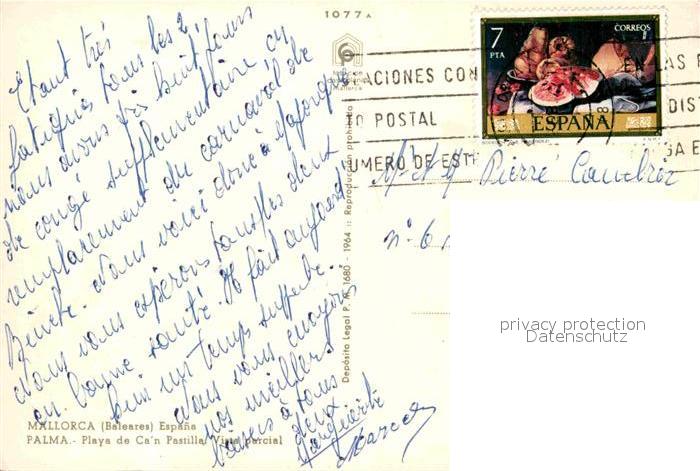 1077 A
Etant très
fatigués tous les 2,
nous avons pris huit jours
de congé supplémentaire en
remplacement du carnaval de
Binche. Nous voici donc à Majorque
Nous vous espérons tous les deux
en bonne santé. Il fait aujourd'hui
un temps superbe.
Nous vous envoyons
nos meilleurs
baisers à tous
deux
Marguerite
Marcel
MALLORCA (Baleares) España
PALMA.- Playa de Ca'n Pastilla. Vista parcial
Depósito Legal P. M. 1680 - 1964 :: Reproducción prohibida
Mallorca
7
PTA
CORREOS
ESPAÑA
ACIONES CON
EN LAS
O POSTAL
DIST
UMERO DE EST
M. et Mme Pierre
n° 61
privacy protection
Datenschutz